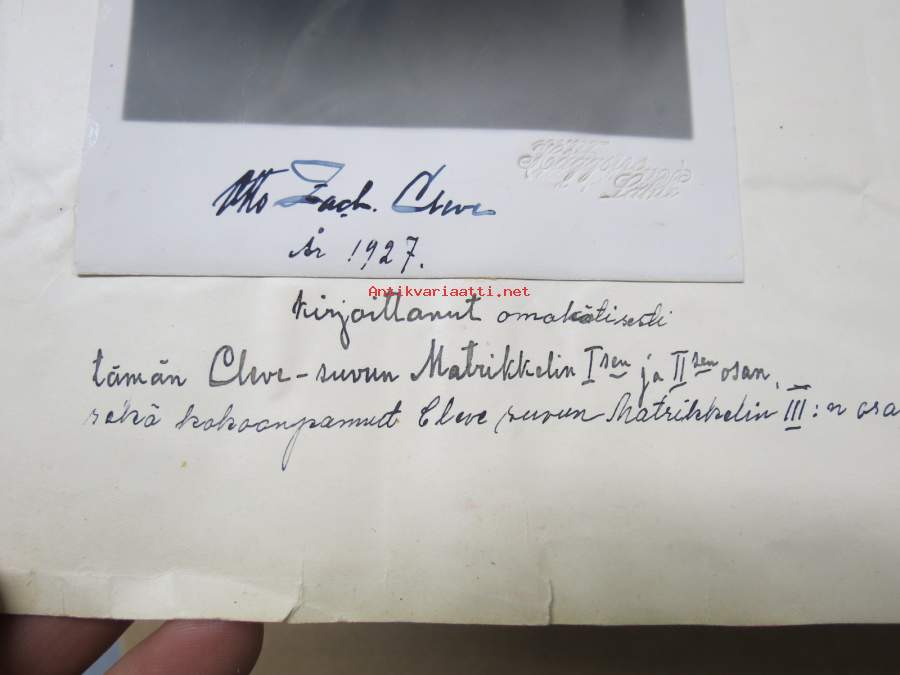 Otto Zach. Cleve
År 1927.
Antikvariaatti.net
kirjoittanut omakätisesti
tämän Cleve-suvun Matrikkelin Isen ja IIsen osan,
sekä kokoonpannut Cleve suvun Matrikkelin III:n osa